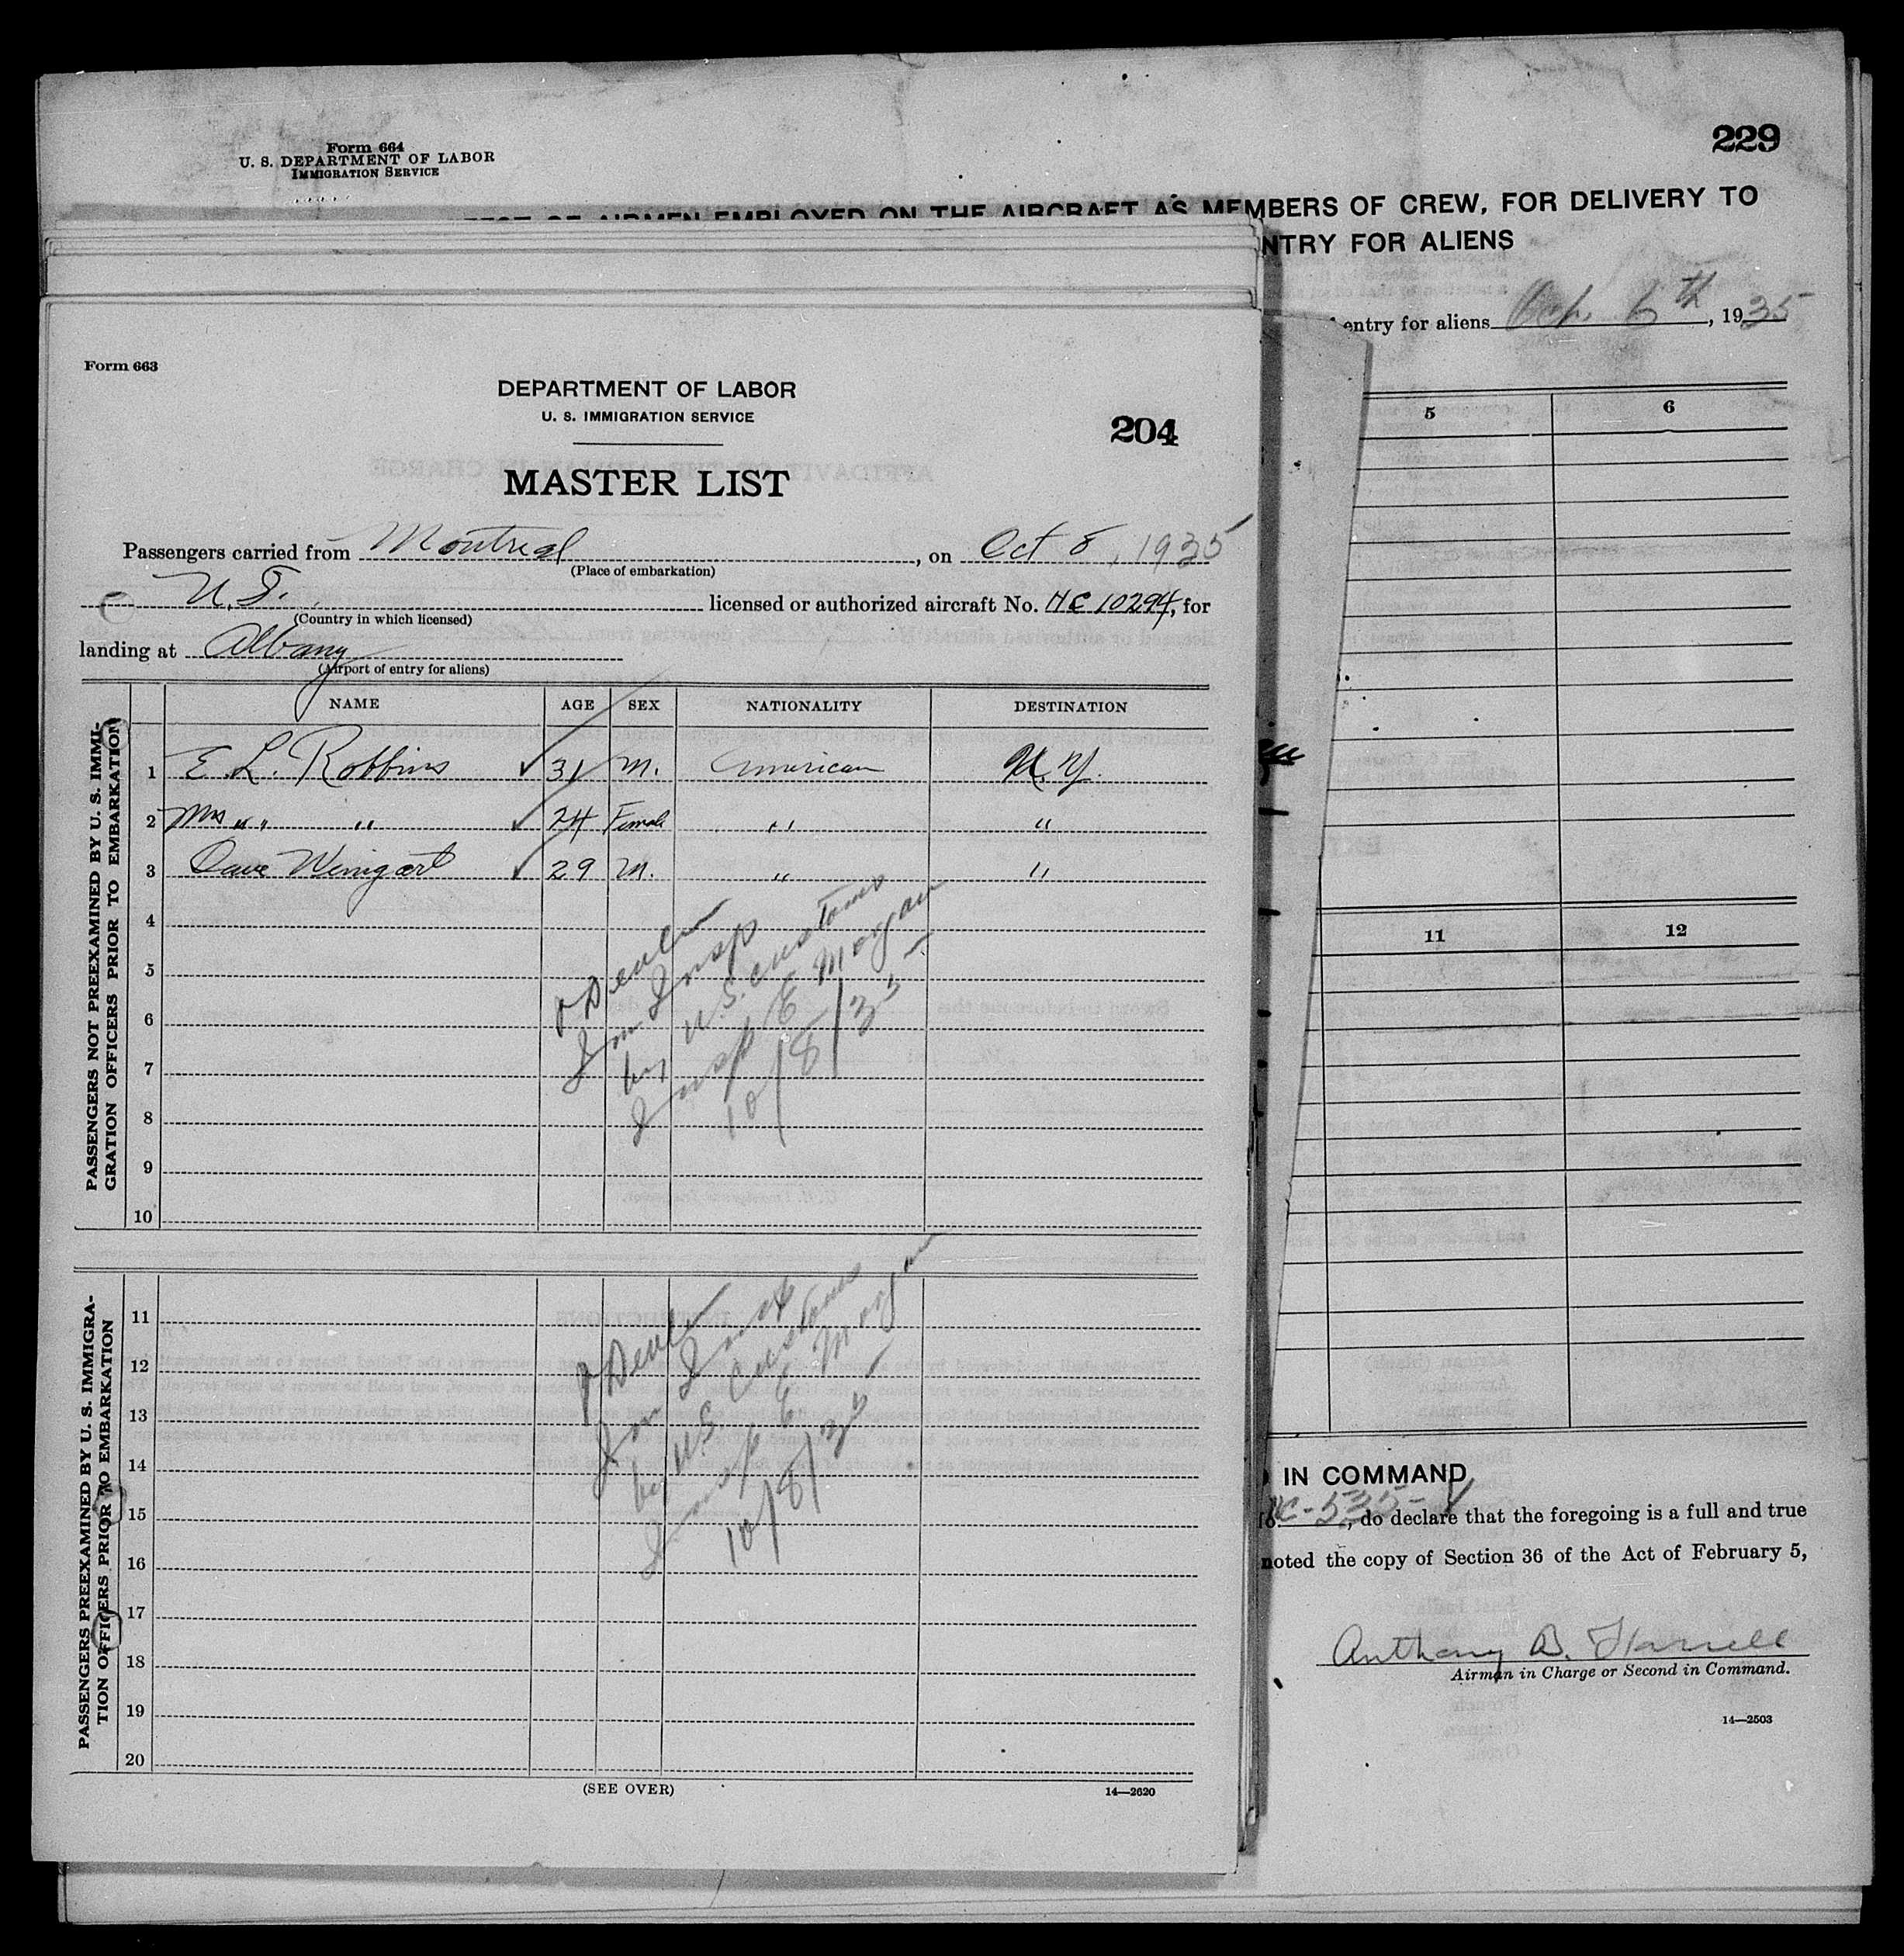 Form 664
U. S. DEPARTMENT OF LABOR
IMMIGRATION SERVICE
229
OF AIRMEN EMPLOYED ON THE AIRCRAFT AS MEMBERS OF CREW, FOR DELIVERY TO
NTRY FOR ALIENS
entry for aliens Oct. 6th, 1935
5 6
11 12
IN COMMAND
NC-535-V, do declare that the foregoing is a full and true
noted the copy of Section 36 of the Act of February 5,
Anthony B.
Airman in Charge or Second in Command.
14—2503
Form 663
DEPARTMENT OF LABOR
U. S. IMMIGRATION SERVICE
204
MASTER LIST
Passengers carried from Montreal, on Oct 8, 1935
(Place of embarkation)
U.S. licensed or authorized aircraft No. NC 10294, for
(Country in which licensed)
landing at Albany
(Airport of entry for aliens)
NAME AGE SEX NATIONALITY DESTINATION
PASSENGERS NOT PREEXAMINED BY U. S. IMMI-
GRATION OFFICERS PRIOR TO EMBARKATION
1 E. L. Robbins ✓ 31 M. American N.Y.
2 Mrs " " " ✓ 24 Female " "
3 Dave Weingart ✓ 29 M. " "
4
5
6
7
8
9
10
J Devlin
Imm Insp
by U.S. Customs
Insp E Morgan
10/8/35
PASSENGERS PREEXAMINED BY U. S. IMMIGRA-
TION OFFICERS PRIOR TO EMBARKATION
11
12
13
14
15
16
17
18
19
20
J Devlin
Imm Insp
by U.S. Customs
Insp E Morgan
10/8/35
(SEE OVER)
14—2620